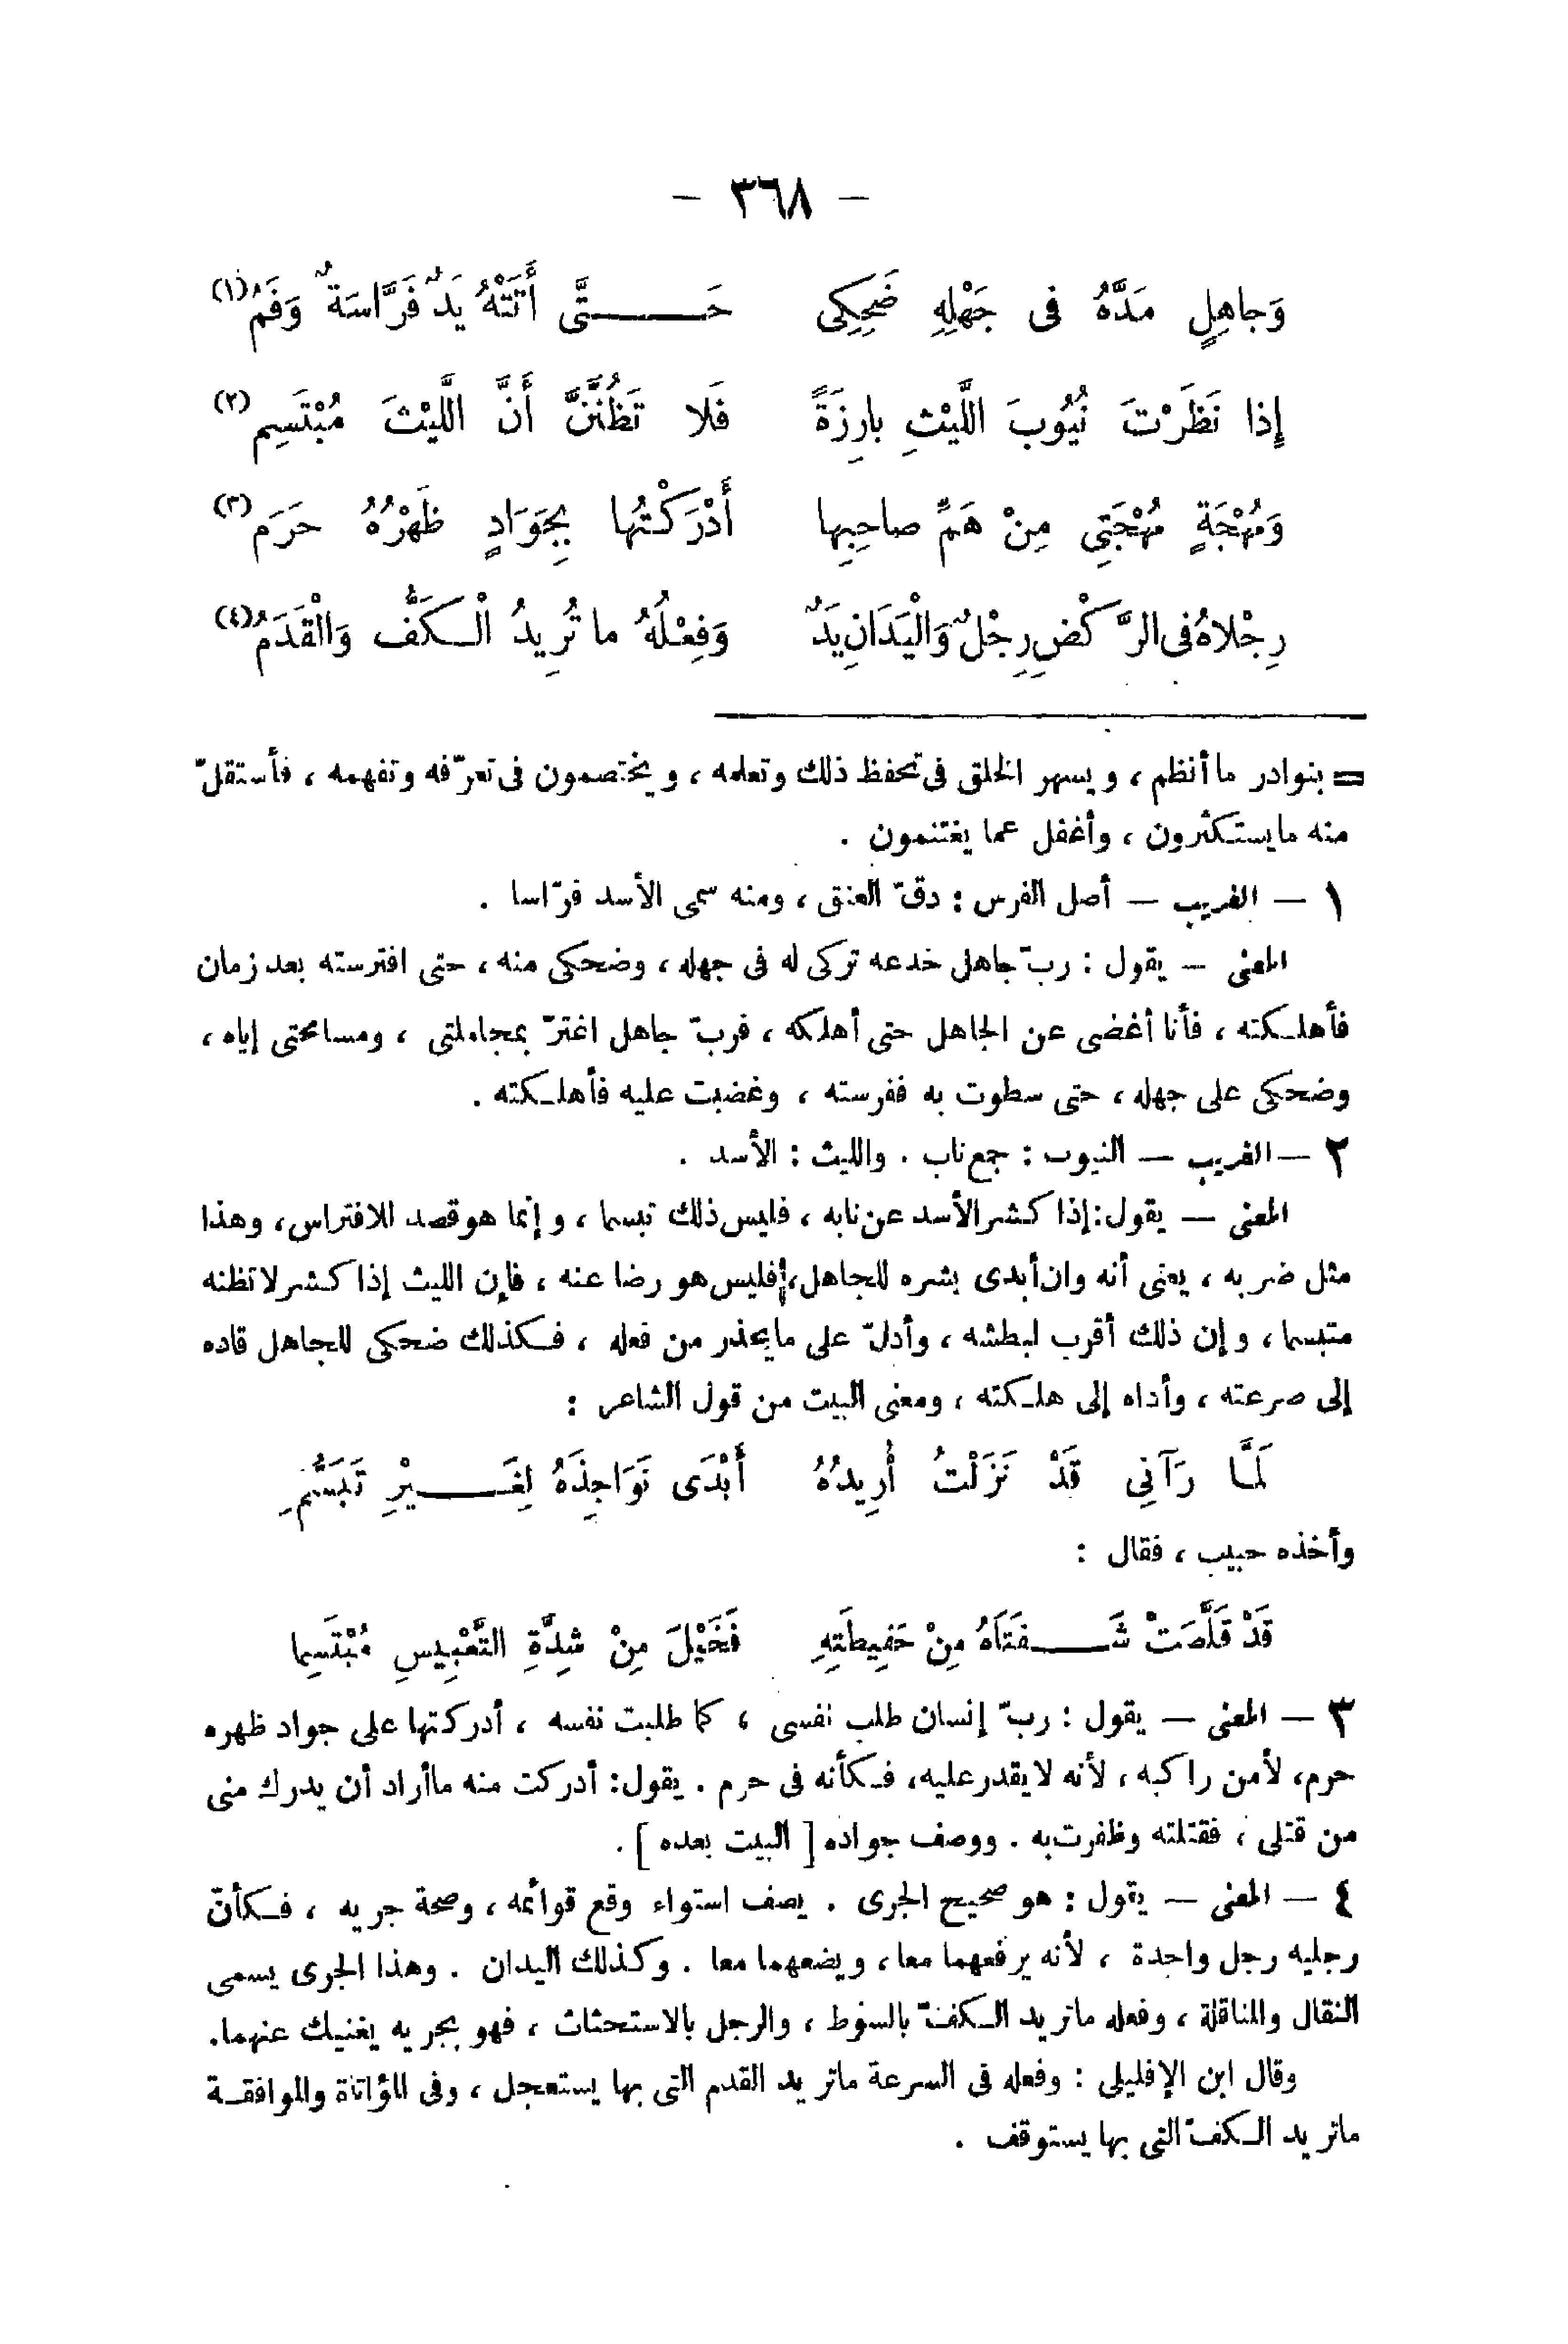 — ٣٦٨ —
وَجاهِلٍ مَدَّهُ فى جَهْلِهِ ضَحِكِى حَـــتَّى أَتَتْهُ يَدٌ فَرَّاسَةٌ وَفَمُ (١)
إِذا نَظَرْتَ نُيُوبَ اللَّيْثِ بارِزَةً فَلا تَظُنَّنَّ أَنَّ اللَّيْثَ مُبْتَسِمُ (٢)
وَمُهْجَةٍ مُهْجَتِى مِنْ هَمِّ صاحِبِها أَدْرَكْتُها بِجَوَادٍ ظَهْرُهُ حَرَمُ (٣)
رِجْلاهُ فى الرَّكْضِ رِجْلٌ وَالْيَدَانِ يَدٌ وَفِعْلُهُ ما تُرِيدُ الْكَفُّ وَالْقَدَمُ (٤)
= بنوادر ما أنظم ، ويسهر الخلق فى تحفظ ذلك وتعلمه ، ويختصمون فى تعرّفه وتفهمه ، فأستقلّ
منه ما يستكثرون ، وأغفل عما يغتنمون .
١ — الغريب — أصل الفرس : دقّ العنق ، ومنه سمى الأسد فرّاسا .
المعنى — يقول : ربّ جاهل خدعه تركى له فى جهله ، وضحكى منه ، حتى افترسته بعد زمان
فأهلكته ، فأنا أغضى عن الجاهل حتى أهلكه ، فربّ جاهل اغترّ بمجاملتى ، ومسامحتى إياه ،
وضحكى على جهله ، حتى سطوت به ففرسته ، وغضبت عليه فأهلكته .
٢ — الغريب — النيوب : جمع ناب . والليث : الأسد .
المعنى — يقول : إذا كشر الأسد عن نابه ، فليس ذلك تبسما ، وإنما هو قصد للافتراس ، وهذا
مثل ضربه ، يعنى أنه وان أبدى بشره للجاهل ، فليس هو رضا عنه ، فإن الليث إذا كشر لا تظنه
متبسما ، وإن ذلك أقرب لبطشه ، وأدلّ على ما يحذر من فعله ، فكذلك ضحكى للجاهل قاده
إلى صرعته ، وأداه إلى هلكته ، ومعنى البيت من قول الشاعر :
لَمَّا رَآنِى قَدْ نَزَلْتُ أُرِيدُهُ أَبْدَى نَوَاجِذَهُ لِغَـــيْرِ تَبَسُّمِ
وأخذه حبيب ، فقال :
قَدْ قَلَّصَتْ شَـــفَتَاهُ مِنْ حَفِيظَتِهِ فَخُيِّلَ مِنْ شِدَّةِ التَّعْبِيسِ مُبْتَسِما
٣ — المعنى — يقول : ربّ إنسان طلب نفسى ، كما طلبت نفسه ، أدركتها على جواد ظهره
حرم، لأمن راكبه ، لأنه لا يقدر عليه، فكأنه فى حرم . يقول : أدركت منه ما أراد أن يدرك منى
من قتلى ، فقتلته وظفرت به . ووصف جواده [ البيت بعده ] .
٤ — المعنى — يقول : هو صحيح الجرى . يصف استواء وقع قوائمه ، وصحة جريه ، فكأنّ
رجليه رجل واحدة ، لأنه يرفعهما معا ، ويضعهما معا . وكذلك اليدان . وهذا الجرى يسمى
النقال والمناقلة ، وفعله ما تريد الكفّ بالسوط ، والرجل بالاستحثاث ، فهو بجريه يغنيك عنهما.
وقال ابن الإفليلى : وفعله فى السرعة ما تريد القدم التى بها يستعجل ، وفى المؤاتاة والموافقة
ما تريد الكفّ التى بها يستوقف .